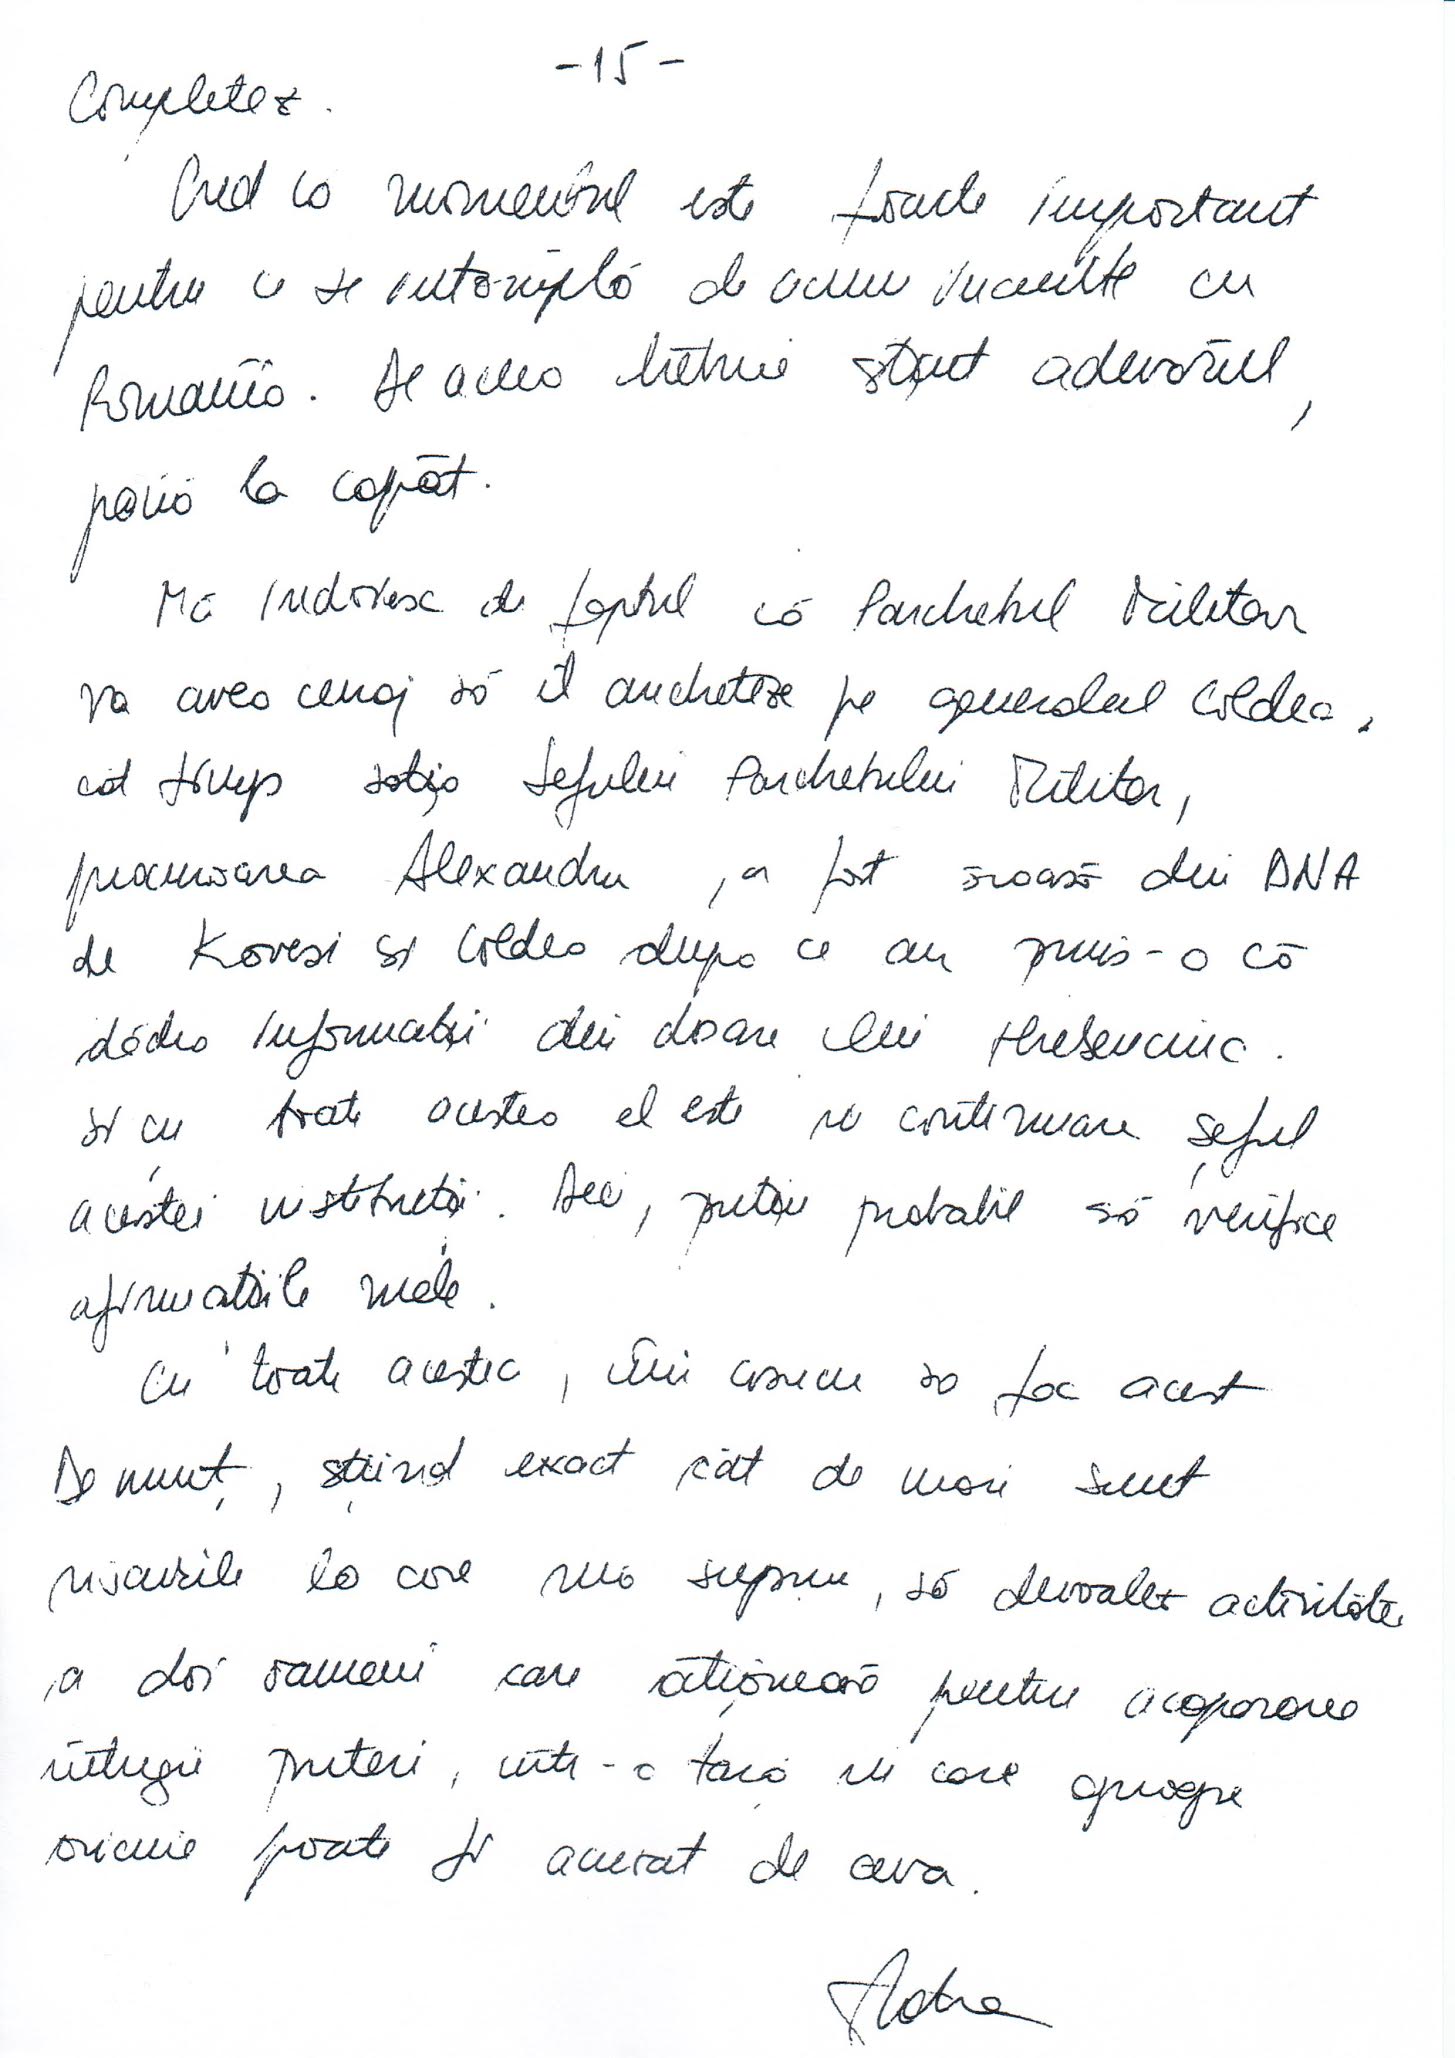 -15-
Completez.
Cred că momentul este foarte important
pentru ce se întâmplă de acum înainte cu
România. De aceea trebuie știut adevărul,
până la capăt.
Mă îndoiesc de faptul că Parchetul Militar
va avea curaj să îl ancheteze pe generalul Coldea,
cât timp soția șefului Parchetului Militar,
procuroarea Alexandru, a fost scoasă din DNA
de Kovesi și Coldea după ce au spus-o că
dădea informații din dosare lui Ghiță
și cu toate acestea el este în continuare șeful
acestei instituții. Deci, puțin probabil să verifice
afirmațiile mele.
Cu toate acestea, îmi asum să fac acest
Denunț, știind exact cât de mari sunt
riscurile la care mă supun, să devoalez activitatea
a doi oameni care acționează pentru acapararea
întregii puteri, într-o țară în care aproape
oricine poate fi acuzat de ceva.